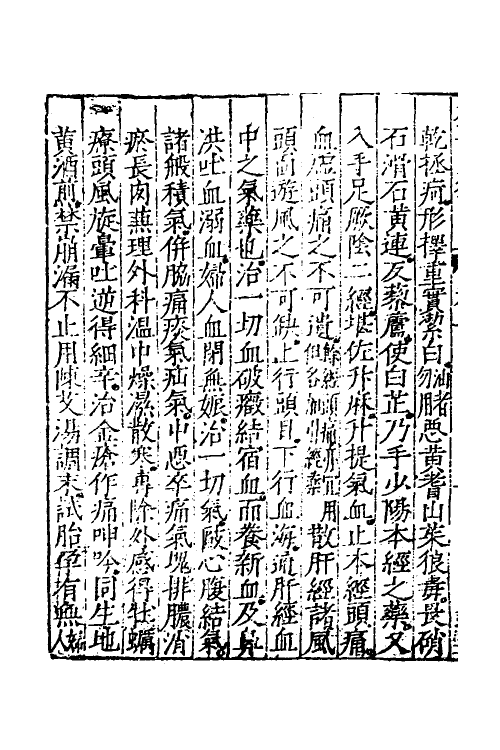 乾極疴形擇重實潔白勿油脂惡黃耆山茱狼毒畏硝
石滑石黃連反藜蘆使白芷乃手少陽本經之藥又
入手足厥陰二經堪佐升麻升提氣血止本經頭痛
血虛頭痛之不可遺餘經頭痛亦宜用但各加引經藥散肝經諸風
頭面遊風之不可缺上行頭目下行血海通肝經血
中之氣藥也治一切血破癥結宿血而養新血及鼻
洪吐血溺血婦人血閉無娠治一切氣敺心腹結氣
諸般積氣併脇痛痰氣疝氣中惡卒痛氣塊排膿消
瘀長肉蕪理外科溫中燥濕散寒再除外感得牡蠣
療頭風旋暈吐逆得細辛治金瘡作痛呻吟同生地
黃酒煎禁崩漏不止用陳艾湯調末試胎孕有無婦人